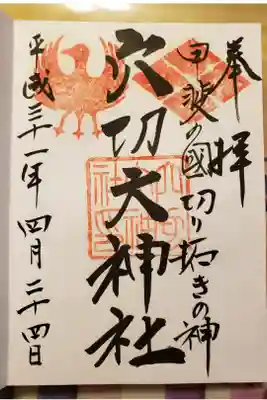 奉拝
甲斐の國切り拓きの神
穴切大神社
平成三十一年四月二十四日